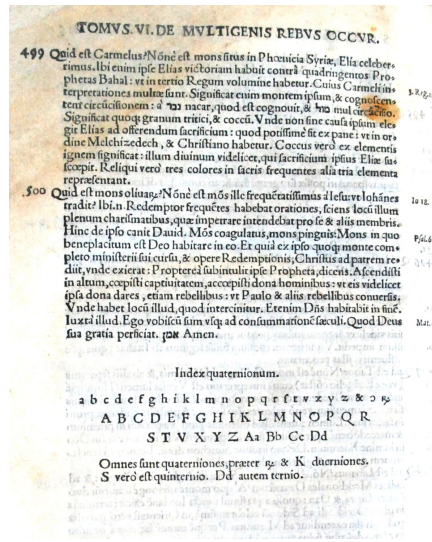 TOMVS. VI. DE MVLTIGENIS REBVS OCCVR.
499 Quid est Carmelus? Nōnē est mons situs in Phœnicia Syriæ, Elia celeber-
rimus. Ibi enim ipse Elias victoriam habuit contrà quadringentos Pro-
phetas Bahal: vt in tertio Regum volumine habetur. Cuius Carmeli in-
terpretationes multæ sunt. Significat enim montem ipsum, & cognoscen-
tem circūcisionem: à נכר nacar, quod est cognouit, & מהל mul circūcisio.
Significat quoqȝ granum tritici, & coccū. Vnde non sine causa ipsum ele-
git Elias ad offerendum sacrificium: quod potissimè sit ex pane: vt in or-
dine Melchizedech, & Christiano habetur. Coccus verò ex elementis
ignem significat: illum diuinum videlicet, qui sacrificium ipsius Eliæ su-
scepit. Reliqui verò tres colores in sacris frequentes alia tria elementa
repræsentant.
3. Reg.
500 Quid est mons oliuaꝝ? Nōnē est mōs ille frequētatissimꝰ à Iesu: vt Iohānes
tradit? Ibi.n. Redemptor frequētes habebat orationes, sciens locū illum
plenum charismatibus, quæ imperare intendebat pro se & aliis membris.
Hinc de ipso canit Dauid. Mōs coagulatus, mons pinguis: Mons in quo
beneplacitum est Deo habitare in eo. Et quià ex ipso quoqȝ monte com-
pleto ministerii sui cursu, & opere Redemptionis, Christus ad patrem re-
diit, vnde exierat: Propterea subintulit ipse Propheta, dicens. Ascendisti
in altum, cœpisti captiuitatem, accœpisti dona hominibus: vt eis videlicet
ipsa dona dares, etiam rebellibus: vt Paulo & aliis rebellibus conuersis.
Vnde habet locū illud, quod intercinitur. Etenim Dn̄s habitabit in finē.
Iuxtà illud. Ego vobiscū sum vsqȝ ad consummationē sæculi. Quod Deus
sua gratia perficiat. אמן Amen.
Io 18.
Psal. 6
Mat.
Index quaternionum.
a b c d e f g h i k l m n o p q r ſ t v x y z & ꝯ ꝝ
A B C D E F G H I K L M N O P Q R
S T V X Y Z Aa Bb Cc Dd
Omnes sunt quaterniones, præter ꝝ & K duerniones.
S verò est quinternio. Dd autem ternio.